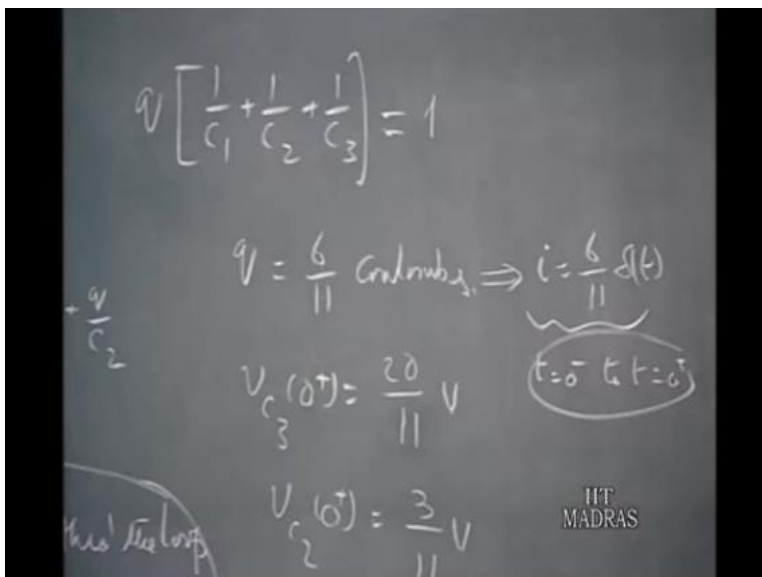 q [ 1/C₁ + 1/C₂ + 1/C₃ ] = 1
q = 6/11 Coulombs. ⇒ i = 6/11 δ(t)
+ q/C₂
t=0⁻ to t=0⁺
V_C₃(0⁺) = 20/11 V
V_C₂(0⁺) = 3/11 V
thro' the loop
IIT
MADRAS